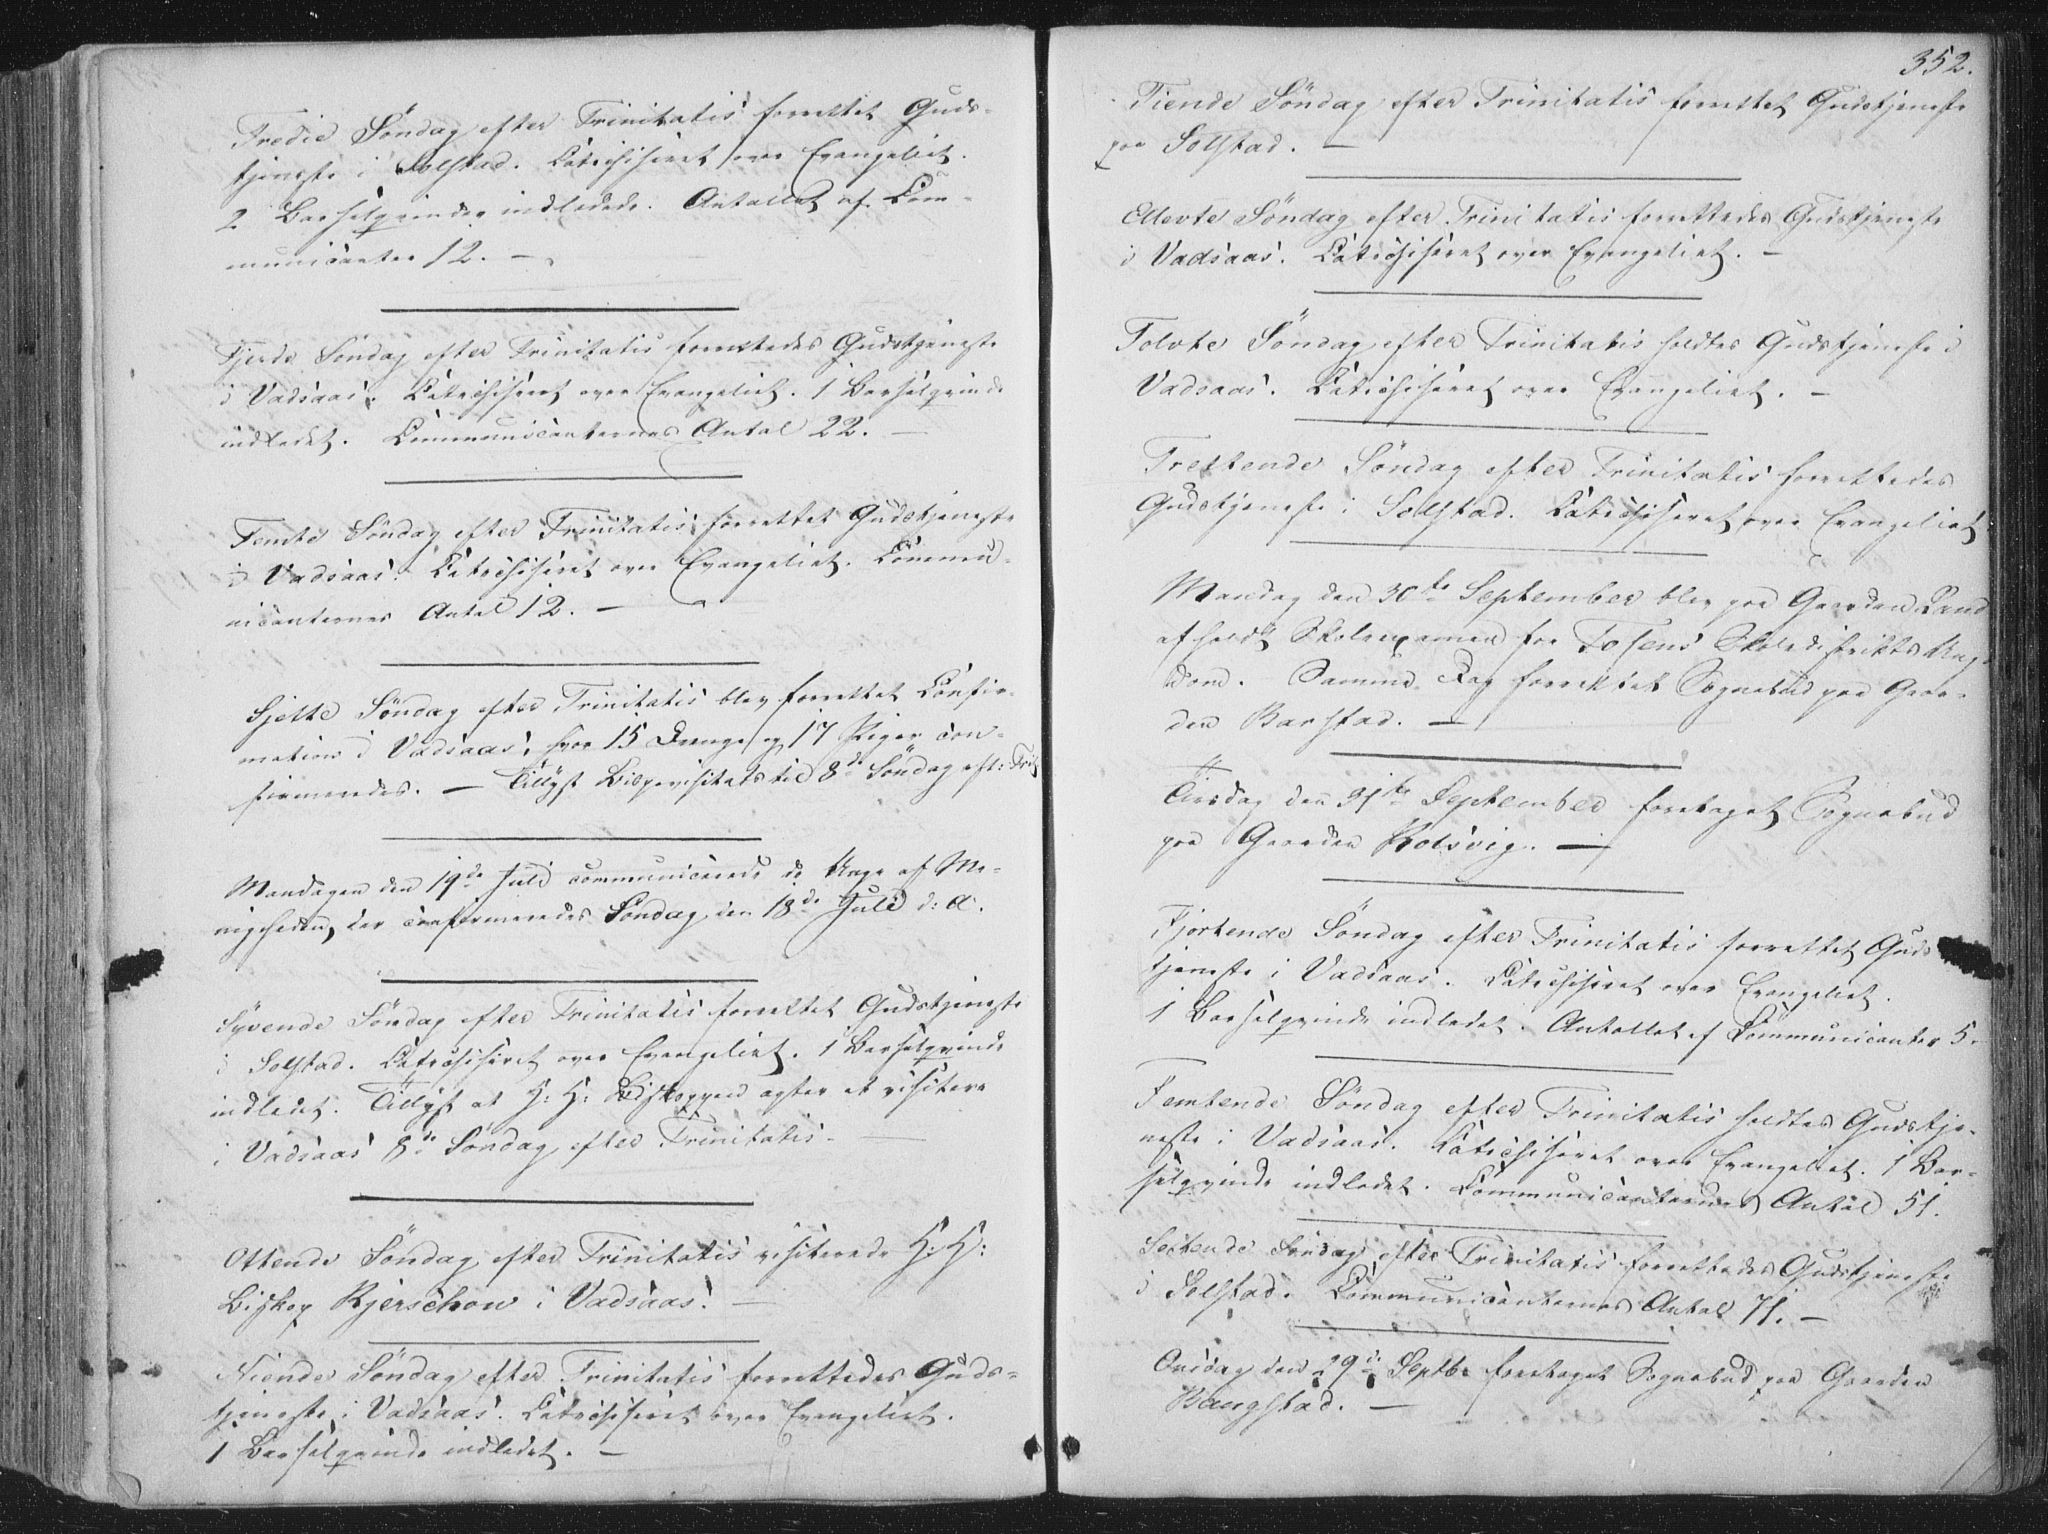 Tredie Søndag efter Trinitatis forrettet Guds-
tjeneste i Solstad. Catechiseret over Evangeliet.
2 Barselqvinder indledede. Antallet af Com-
municanter 12. —
Fjerde Søndag efter Trinitatis forrettedes Gudstjeneste
i Vadsaas. Catechiseret over Evangeliet. 1 Barselqvinde
indledet. Communicanternes Antal 22. —
Femte Søndag efter Trinitatis forrettet Gudstjeneste
i Vadsaas. Catechiseret over Evangeliet. Commu-
nicanternes Antal 12. —
Sjette Søndag efter Trinitatis blev forrettet Confir-
mation i Vadsaas, hvor 15 Drenge og 17 Piger con-
firmeredes. — Tillyst Bispevisitats til 8de Søndag eft: Trit
Mandagen den 19de Juli communicerede de Unge af Me-
nigheden, der confirmeredes Søndag den 18de Juli d: A.
Syvende Søndag efter Trinitatis forrettet Gudstjeneste
i Solstad. Catechiseret over Evangeliet. 1 Barselqvinde
indledet. Tillyst at H: H: Biskoppen agter at visitere
i Vadsaas 8de Søndag efter Trinitatis. —
Ottende Søndag efter Trinitatis visiterede H: H:
Biskop Kjerschow i Vadsaas. —
Niende Søndag efter Trinitatis forrettedes Guds-
tjeneste i Vadsaas. Catechiseret over Evangeliet.
1 Barselqvinde indledet. —
352.
Tiende Søndag efter Trinitatis forrettet Gudstjeneste
paa Solstad. —
Ellevte Søndag efter Trinitatis forrettedes Gudstjeneste
i Vadsaas. Catechiseret over Evangeliet. —
Tolvte Søndag efter Trinitatis holdtes Gudstjeneste i
Vadsaas. Catechiseret over Evangeliet. —
Trettende Søndag efter Trinitatis forrettedes
Gudstjeneste i Solstad. Catechiseret over Evangeliet
Mandag den 30te September blev paa Gaarden Land
afholdt Skoleexamen for Tosens Skoledistrikts Ung-
dom. Samme Dag forrettet Sognebud paa Gaar-
den Barstad. —
Tirsdag den 31te September foretaget Sognebud
paa Gaarden Kolsvig. —
Fjortende Søndag efter Trinitatis forrettet Guds
tjeneste i Vadsaas. Catechiseret over Evangeliet.
1 Barselqvinde indledet. Antallet af Communicanter 5.
Femtende Søndag efter Trinitatis holdtes Gudstje-
neste i Vadsaas. Catechiseret over Evangeliet. 1 Bar-
selqvinde indledet. Communicanternes Antal 51.
Sextende Søndag efter Trinitatis forrettedes Gudstjeneste
i Solstad. Communicanternes Antal 71. —
Onsdag den 29de Septbr foretaget Sognebud paa Gaarden
Bangstad. —